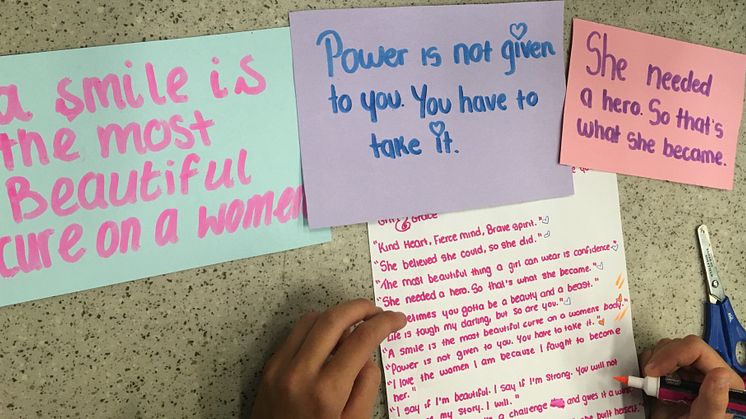 a smile is
the most
Beautiful
cure on a women
Power is not given
to you. You have to
take it.
She needed
a hero. So that's
what she became.
Grit & Grace
"Kind Heart, Fierce mind, Brave spirit."
"She believed she could, so she did."
"The most beautiful thing a girl can wear is confidence."
"She needed a hero. So that's what she became."
you gotta be a beauty and a beast."
Life is tough my darling, but so are you."
"A smile is the most beautiful curve on a womens body."
"Power is not given to you. You have to take it."
"I love the women I am because I faught to become
her."
"I say if I'm beautiful. I say if I'm strong. You will not
my story. I will."
a challenge and gives it a
built herself.